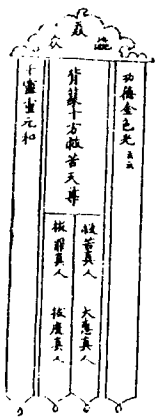 功德金色光云云
背篆十方救苦天尊
救苦真人 大惠真人
拔罪真人 拔度真人
千靈重元和